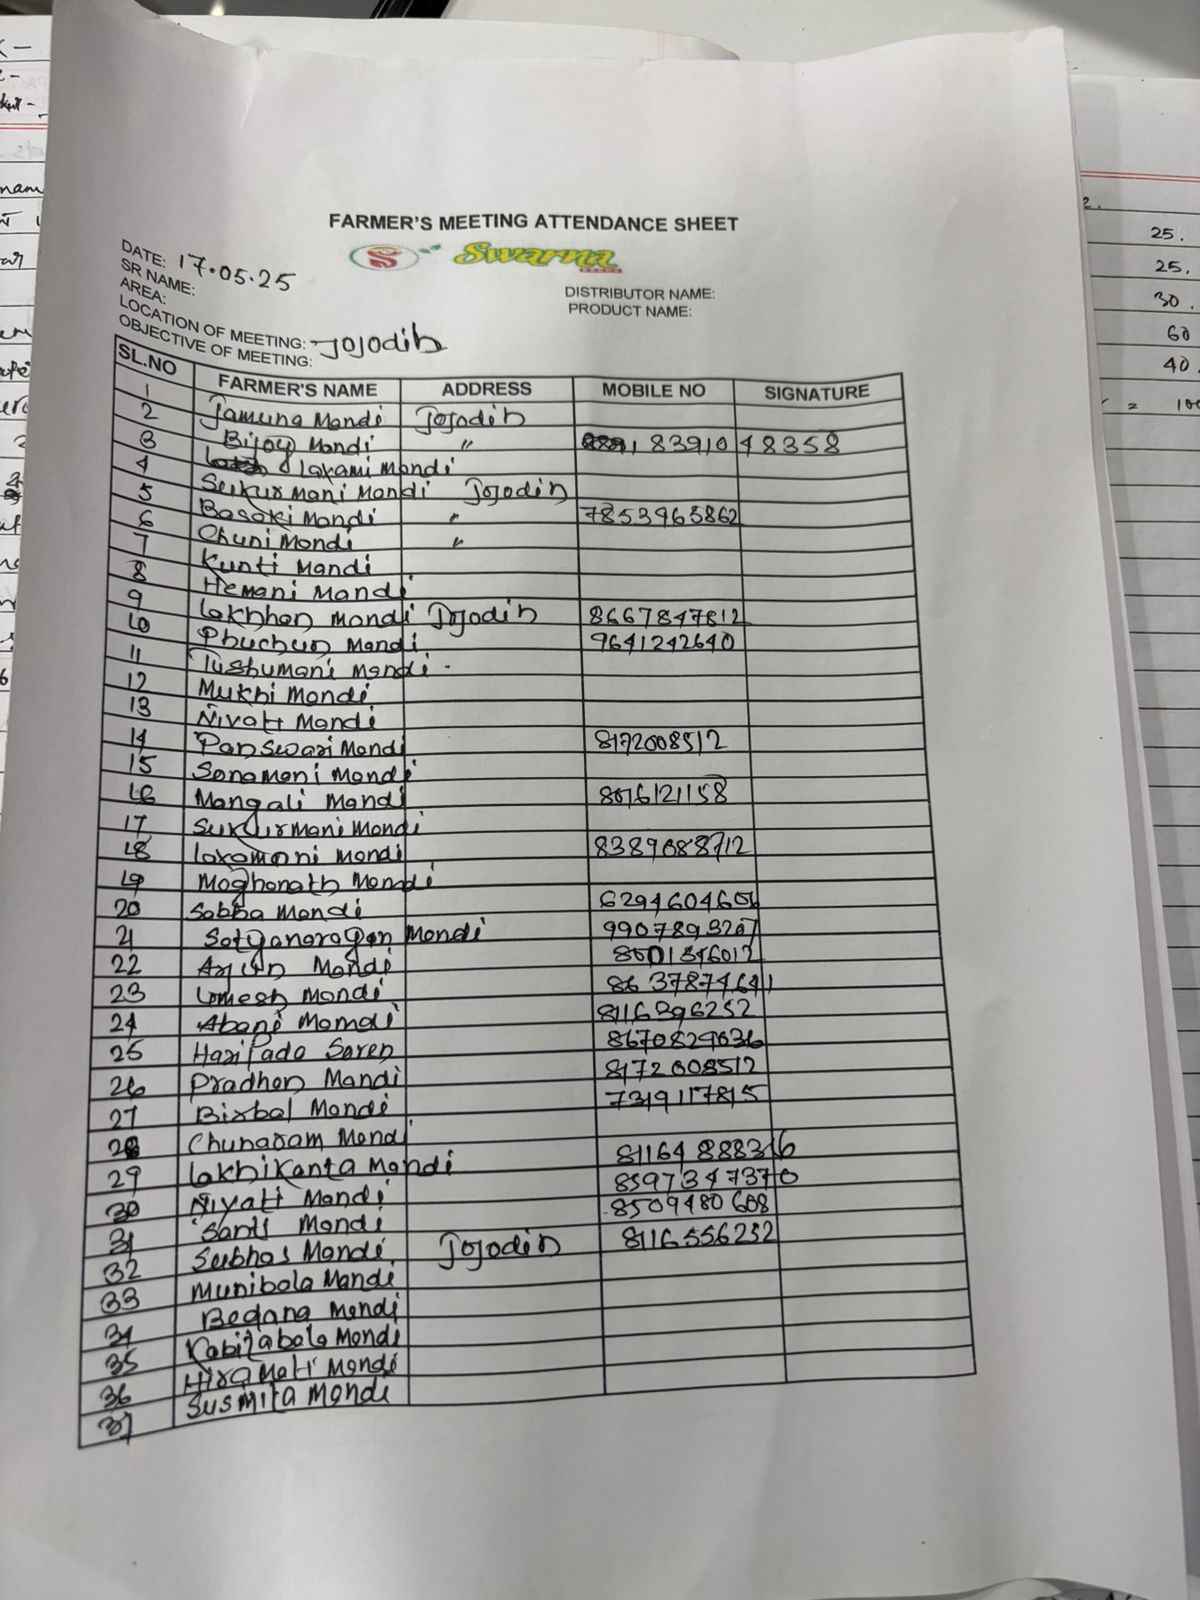 FARMER'S MEETING ATTENDANCE SHEET
S Swarna
DATE: 17.05.25
SR NAME:
DISTRIBUTOR NAME:
AREA:
PRODUCT NAME:
LOCATION OF MEETING: Jojodih
OBJECTIVE OF MEETING:
SL.NO FARMER'S NAME ADDRESS MOBILE NO SIGNATURE
1 Jamuna Mandi Jojodih
2 Bijoy Mandi " 8391048358
3 Laxami Mandi
4 Sukurmani Mandi Jojodih
5 Basoki Mandi " 7853963862
6 Chuni Mandi "
7 Kunti Mandi
8 Hemani Mandi
9 Lakhhan Mandi Jojodih 8667847812
10 Phuchun Mandi 9641242640
11 Tushumani Mandi
12 Mukhi Mandi
13 Niyati Mandi
14 Panswari Mandi 8172008512
15 Sonamoni Mandi
16 Mangali Mandi 8016121158
17 Sukurmani Mandi
18 Laxomoni Mandi 8389088712
19 Moghonath Mandi
20 Sobha Mandi 6294604606
21 Satyanarayan Mandi 9907893207
22 Arjun Mandi 8001346012
23 Umesh Mandi 8637874641
24 Abani Momdi 8116396252
25 Haripado Saren 8670829036
26 Pradhan Mandi 8172008512
27 Birbal Mandi 7319117815
28 Chunaram Mandi
29 Lakhikanta Mandi 8116488836
30 Niyati Mandi 8597347370
31 Santi Mandi 8509480608
32 Subhas Mandi Jojodih 8116556252
33 Munibala Mandi
34 Bedana Mandi
35 Kabitabala Mandi
36 Hiramati Mandi
37 Susmita Mandi
25.
25.
30.
60
40.
= 100